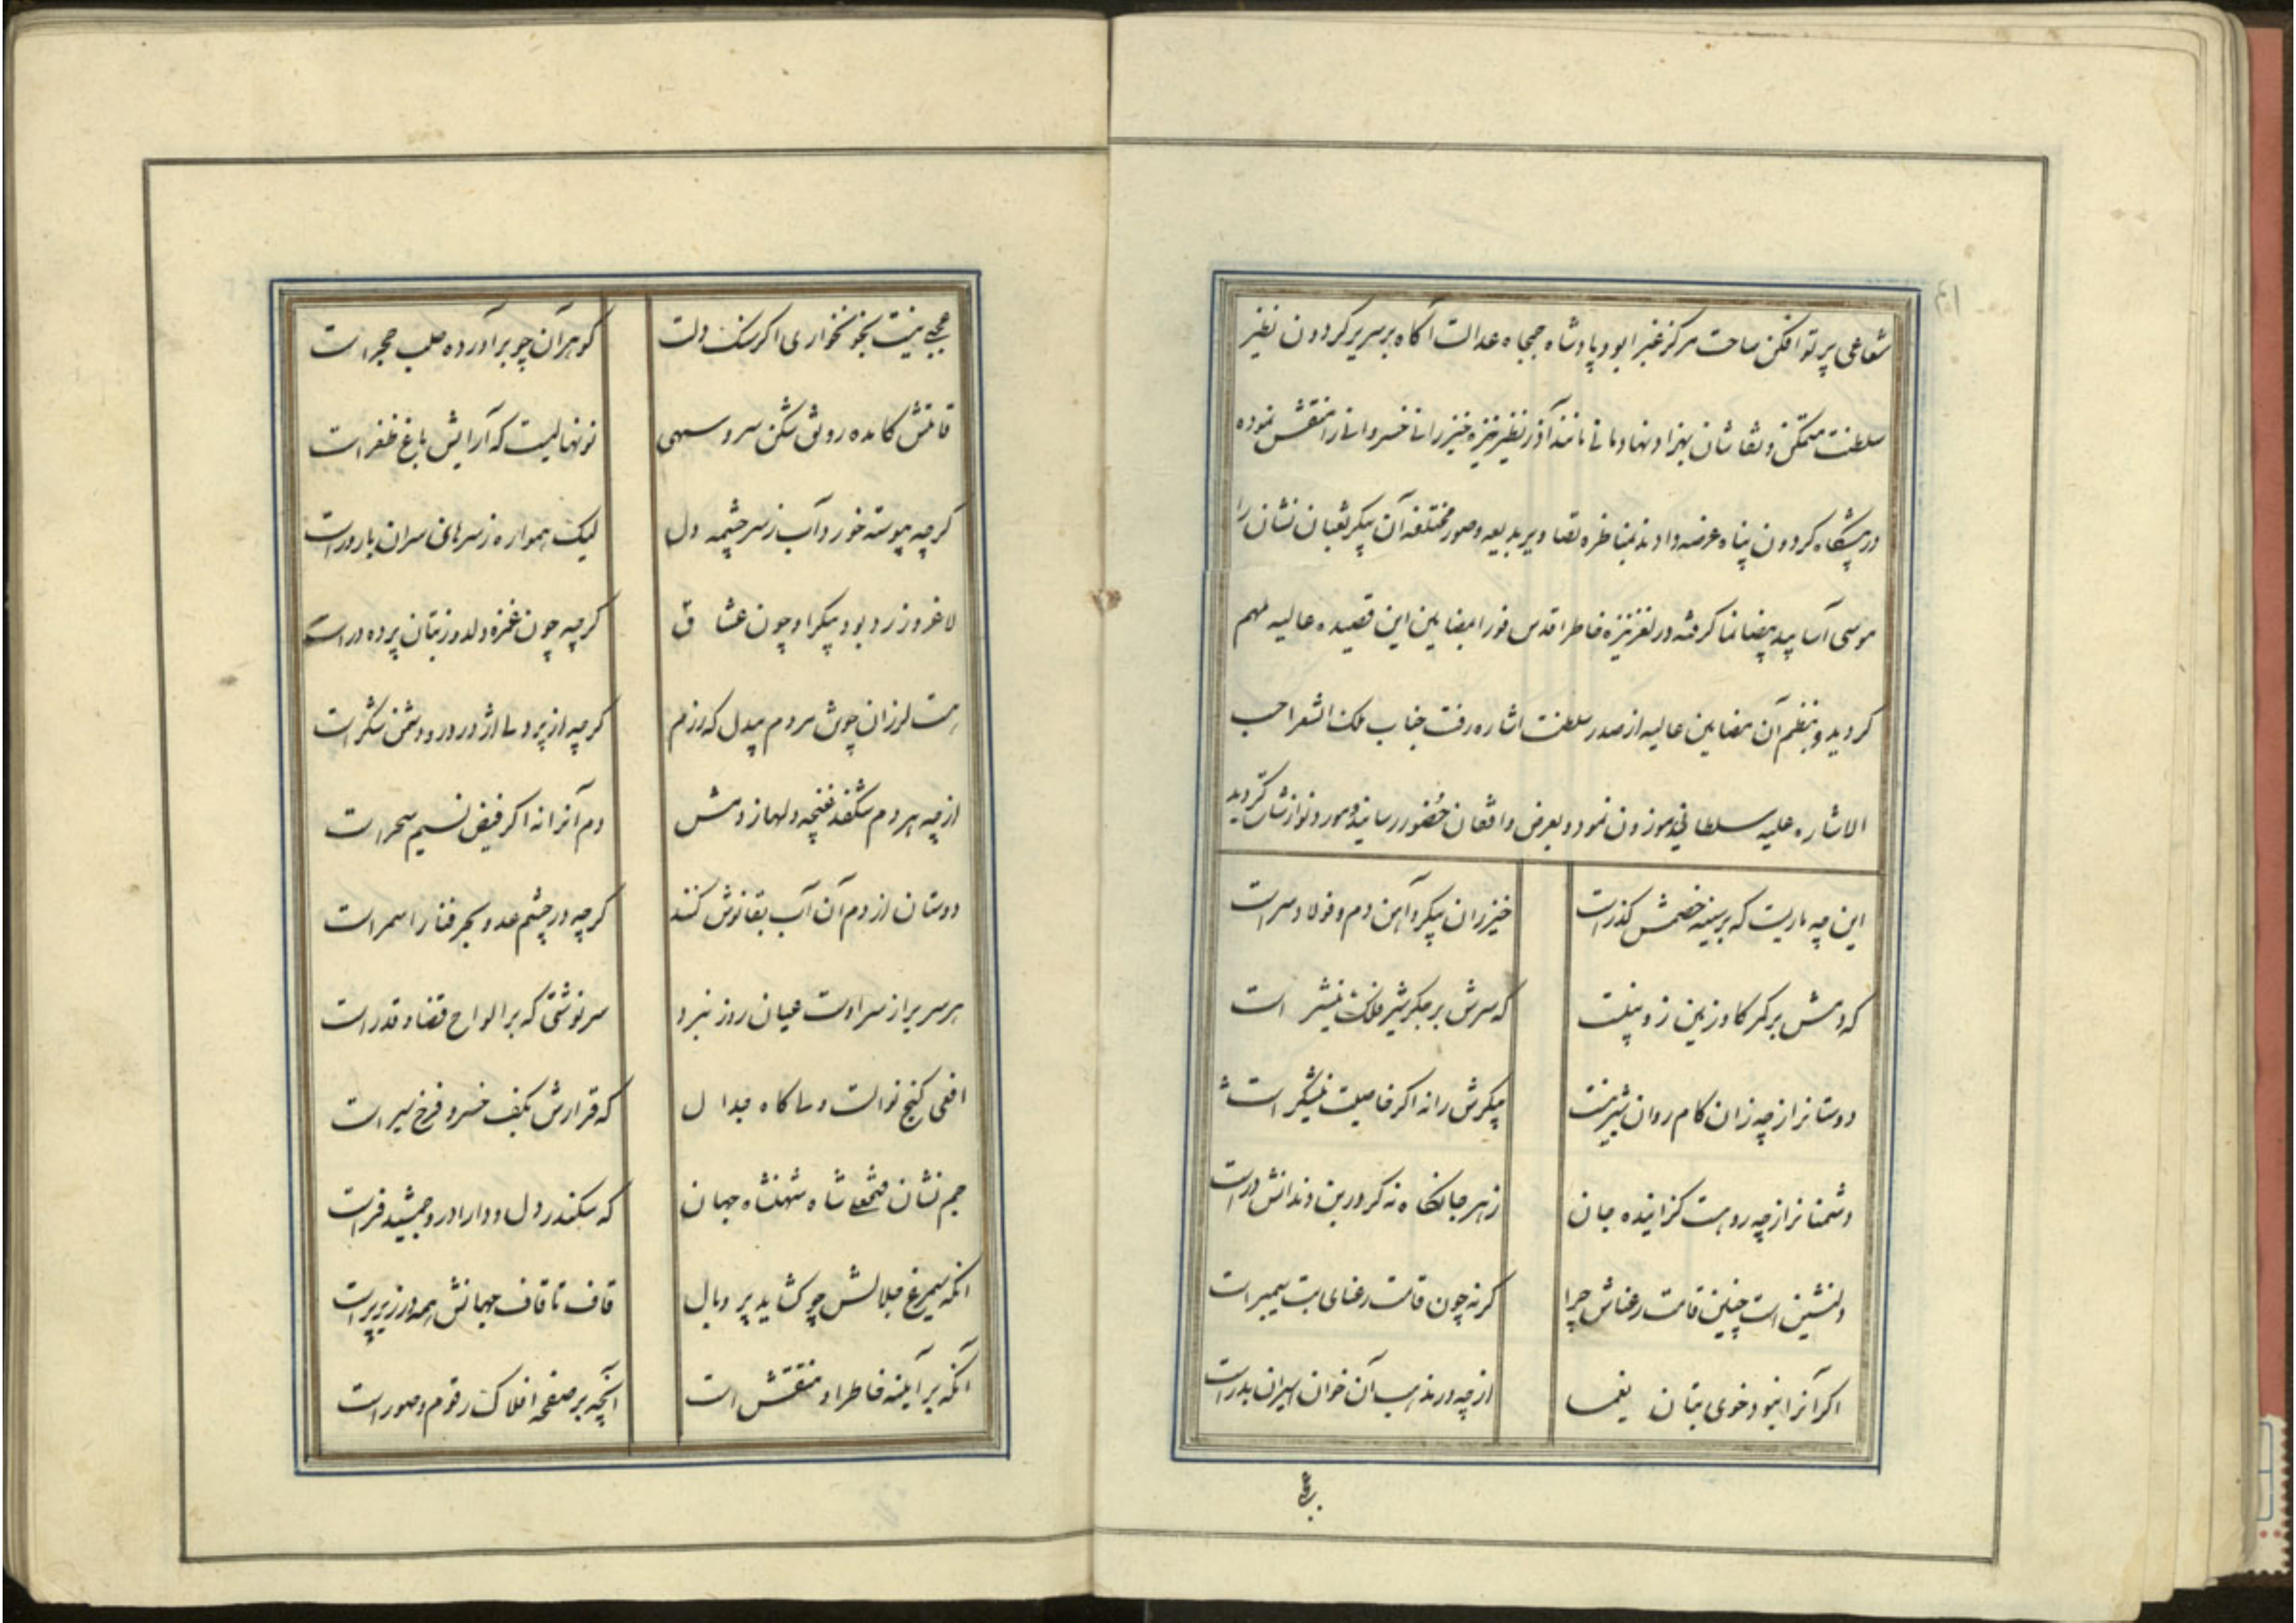 شعاعی پرتو افکن ساحت مرکز غبرا بود پادشاه جمجاه عدالت آگاه بر سریر کردون نظیر
سلطنت متمکن و نقاشان بهزاد نهاد و مانی مانند آذر نظیر نیزه خیزرانی خسروانی را منقش نموده
در پیشگاه کردون پناه عرضه دادند بمناظره تصاویر بدیعه و صور مختلفه آن پیکر ثعبان نشان را
موسی آسا ید بیضا نما کرفته در لغز نیزه خاطر اقدس فورا بمضامین این قصیده عالیه ملهم
کردید و بنظم آن مضامین عالیه از صدر سلطنت اشاره رفت جناب ملک الشعرا حسب
الاشاره علیه سلطانی موزون نمود و بعرض واقفان حضور رسانید و مورد نوازشات کردید
این چه ماریست که بر سینه خصمش کذر است
خیزران پیکر و آهن دم و فولاد سر است
که دمش بر کمر کاو زمین زوبینست
که سرش بر جکر شیر فلک نیشتر است
دوستانرا ز چه زان کام روان شیرینست
پیکرش را نه اکر خاصیت نیشکر است
دشمنانرا ز چه رو هست کزاینده جان
زهر جانکاه نه کر در بن دندانش در است
دلنشین است چنین قامت رعناش چرا
کر نه چون قامت رعنای بت سیمبر است
اکر آنرا نبود خوی بتان یغما
از چه در مذهب آن خوان اسیران هدر است
عجبی نیست بخونخواری اکر سنک دلت
کوهر آن چو برآورده صلب حجر است
قامتش کامده رونق شکن سرو سهی
نونهالیست که آرایش باغ ظفر است
کرچه پیوسته خورد آب ز سرچشمه دل
لیک همواره ز سرهای سران بارور است
لاغر و زرد بود پیکر او چون عشاق
کرچه چون غمزه دلدوز بتان پرده در است
هست لرزان چو تن مردم بیدل که رزم
کرچه از پردلی اژدر در و دشمن شکر است
از چه هر دم شکفد غنچه دلها ز دمش
دم آنرا نه اکر فیض نسیم سحر است
دوستان از دم آن آب بقا نوش کنند
کرچه در چشم عدو بحر فنا را سمر است
هر سر پر از سر اوست عیان روز نبرد
سرنوشتی که بر الواح قضا و قدر است
افعی کنج نوالست و ساکاه جدال
که قرارش بکف خسرو فرخ سیر است
جم نشان فتحعلی شاه شهنشاه جهان
که سکندر دل و دارا در و جمشید فر است
آنکه سیمرغ جلالش چو کشاید پر و بال
قاف تا قاف جهانش همه در زیر پر است
آنکه بر آینه خاطر او منقش است
آنچه بر صفحه افلاک رقوم و صور است